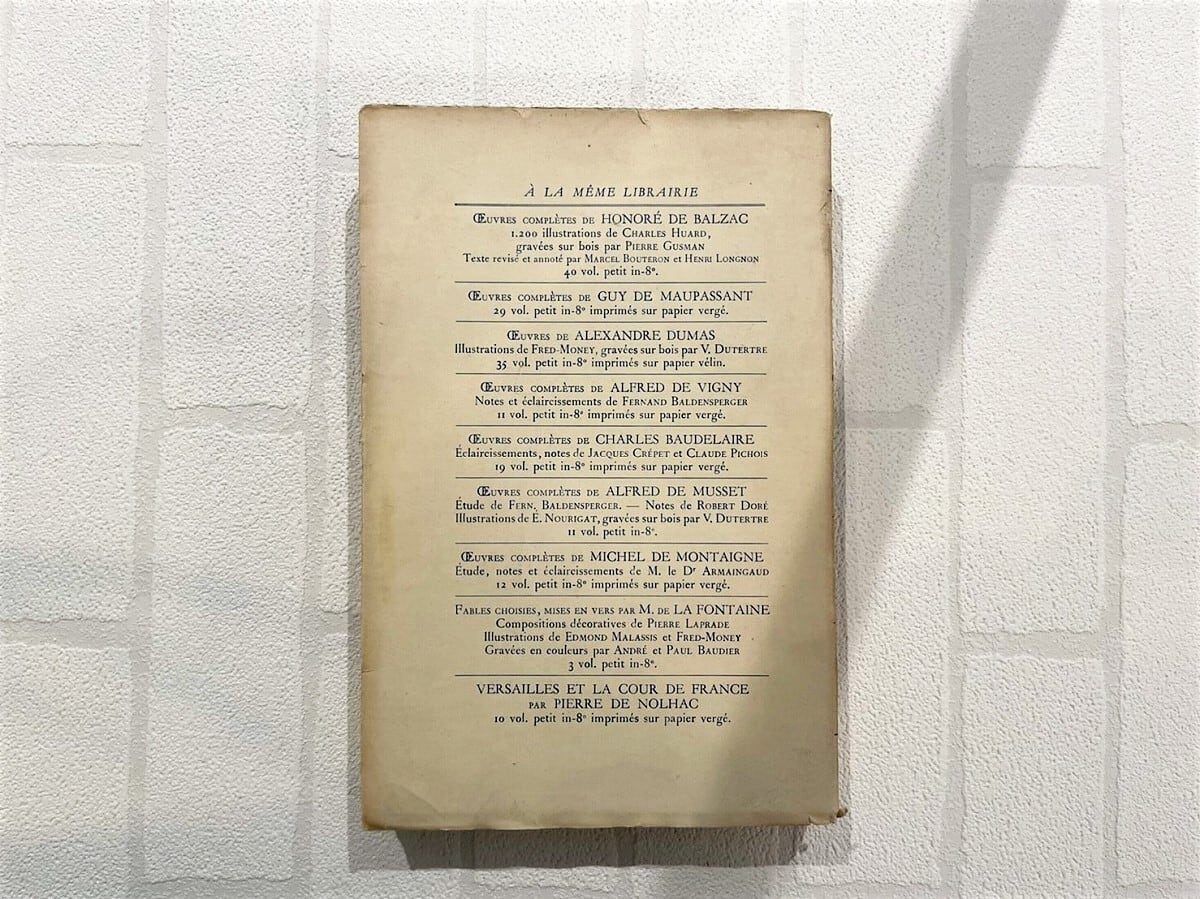 À LA MÊME LIBRAIRIE
ŒUVRES COMPLÈTES DE HONORÉ DE BALZAC
1.200 illustrations de CHARLES HUARD,
gravées sur bois par PIERRE GUSMAN
Texte revisé et annoté par MARCEL BOUTERON et HENRI LONGNON
40 vol. petit in-8°.
ŒUVRES COMPLÈTES DE GUY DE MAUPASSANT
29 vol. petit in-8° imprimés sur papier vergé.
ŒUVRES DE ALEXANDRE DUMAS
Illustrations de FRED-MONEY, gravées sur bois par V. DUTERTRE
35 vol. petit in-8° imprimés sur papier vélin.
ŒUVRES COMPLÈTES DE ALFRED DE VIGNY
Notes et éclaircissements de FERNAND BALDENSPERGER
11 vol. petit in-8° imprimés sur papier vergé.
ŒUVRES COMPLÈTES DE CHARLES BAUDELAIRE
Éclaircissements, notes de JACQUES CRÉPET et CLAUDE PICHOIS
19 vol. petit in-8° imprimés sur papier vergé.
ŒUVRES COMPLÈTES DE ALFRED DE MUSSET
Étude de FERN. BALDENSPERGER. — Notes de ROBERT DORÉ
Illustrations de E. NOURIGAT, gravées sur bois par V. DUTERTRE
11 vol. petit in-8°.
ŒUVRES COMPLÈTES DE MICHEL DE MONTAIGNE
Étude, notes et éclaircissements de M. le Dr ARMAINGAUD
12 vol. petit in-8° imprimés sur papier vergé.
FABLES CHOISIES, MISES EN VERS PAR M. DE LA FONTAINE
Compositions décoratives de PIERRE LAPRADE
Illustrations de EDMOND MALASSIS et FRED-MONEY
Gravées en couleurs par ANDRÉ et PAUL BAUDIER
3 vol. petit in-8°.
VERSAILLES ET LA COUR DE FRANCE
PAR PIERRE DE NOLHAC
10 vol. petit in-8° imprimés sur papier vergé.